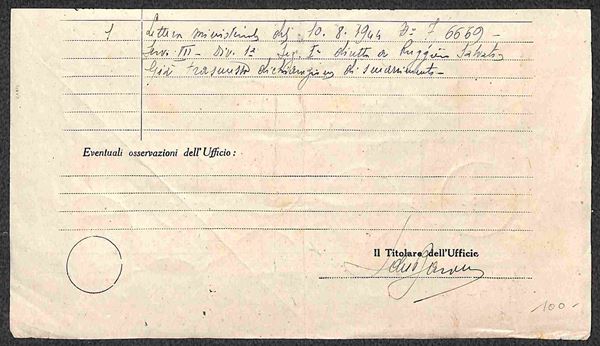 1 Lettera ministeriale del 10.8.1944 N° 7 6669 -
Serv. VII - Div. 1ª Sez. Iª diretta a Ruggiero Salvati
Già trasmessa dichiarazione di smarrimento -
Eventuali osservazioni dell'Ufficio :
Il Titolare dell'Ufficio
100 -